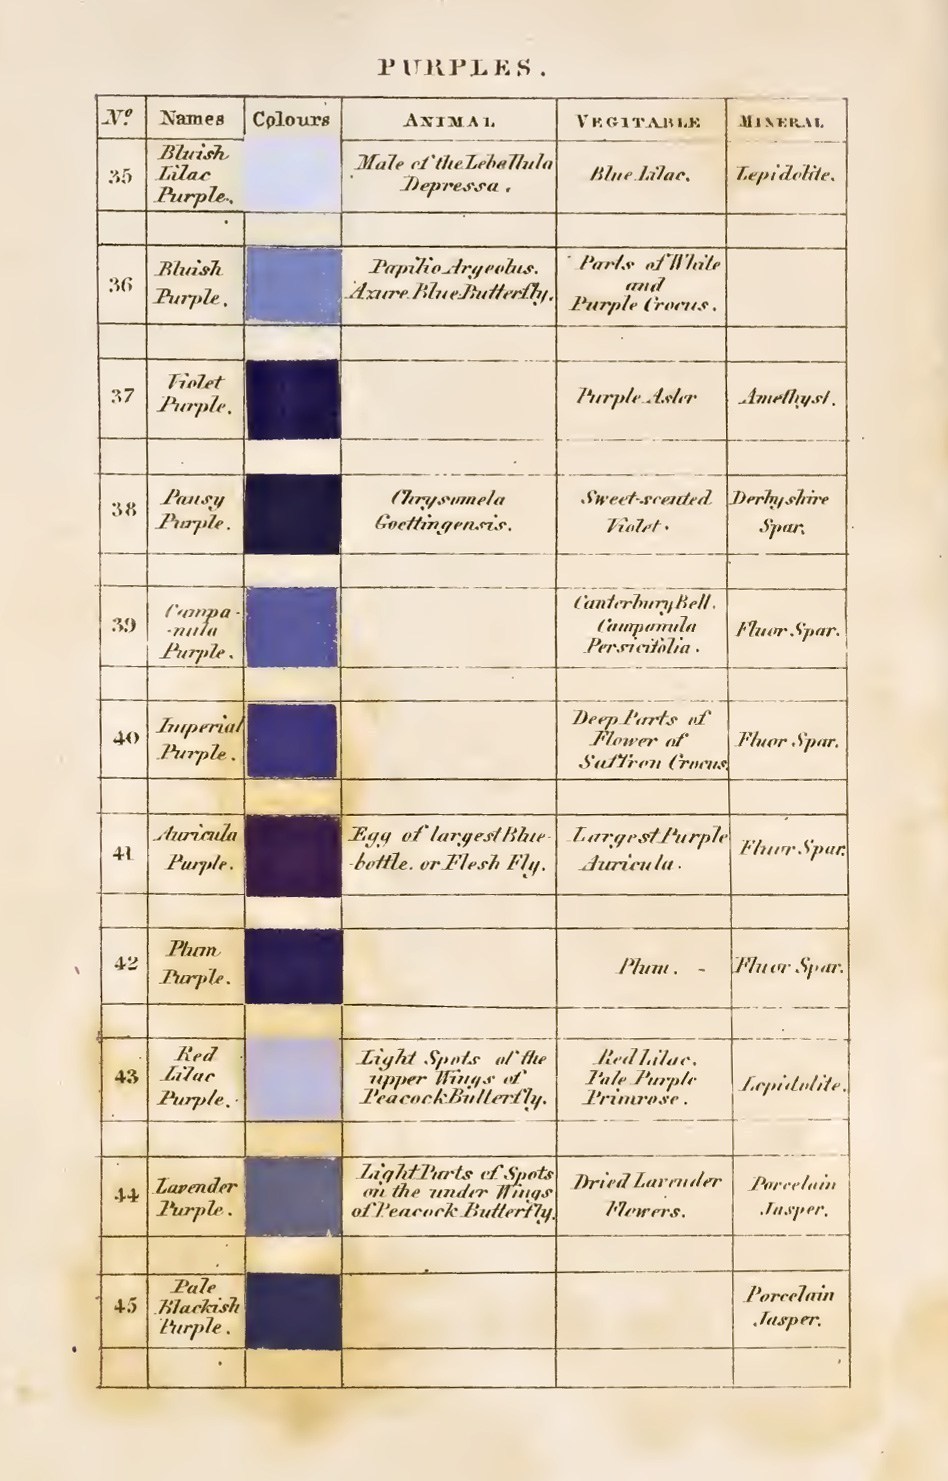 PURPLES.
No. Names Colours ANIMAL VEGITABLE MINERAL
35 Bluish Lilac Purple. Male of the Lebellula Depressa. Blue Lilac. Lepidolite.
36 Bluish Purple. Papilio Argeolus. Azure Blue Butterfly. Parts of White and Purple Crocus.
37 Violet Purple. Purple Aster Amethyst.
38 Pansy Purple. Chrysomela Goettingensis. Sweet-scented Violet. Derbyshire Spar.
39 Campa- -nula Purple. Canterbury Bell. Campanula Persicifolia. Fluor Spar.
40 Imperial Purple. Deep Parts of Flower of Saffron Crocus. Fluor Spar.
41 Auricula Purple. Egg of largest Blue- -bottle. or Flesh Fly. Largest Purple Auricula. Fluor Spar.
42 Plum Purple. Plum. - Fluor Spar.
43 Red Lilac Purple. Light Spots of the upper Wings of Peacock Butterfly. Red Lilac. Pale Purple Primrose. Lepidolite.
44 Lavender Purple. Light Parts of Spots on the under Wings of Peacock Butterfly. Dried Lavender Flowers. Porcelain Jasper.
45 Pale Blackish Purple. Porcelain Jasper.